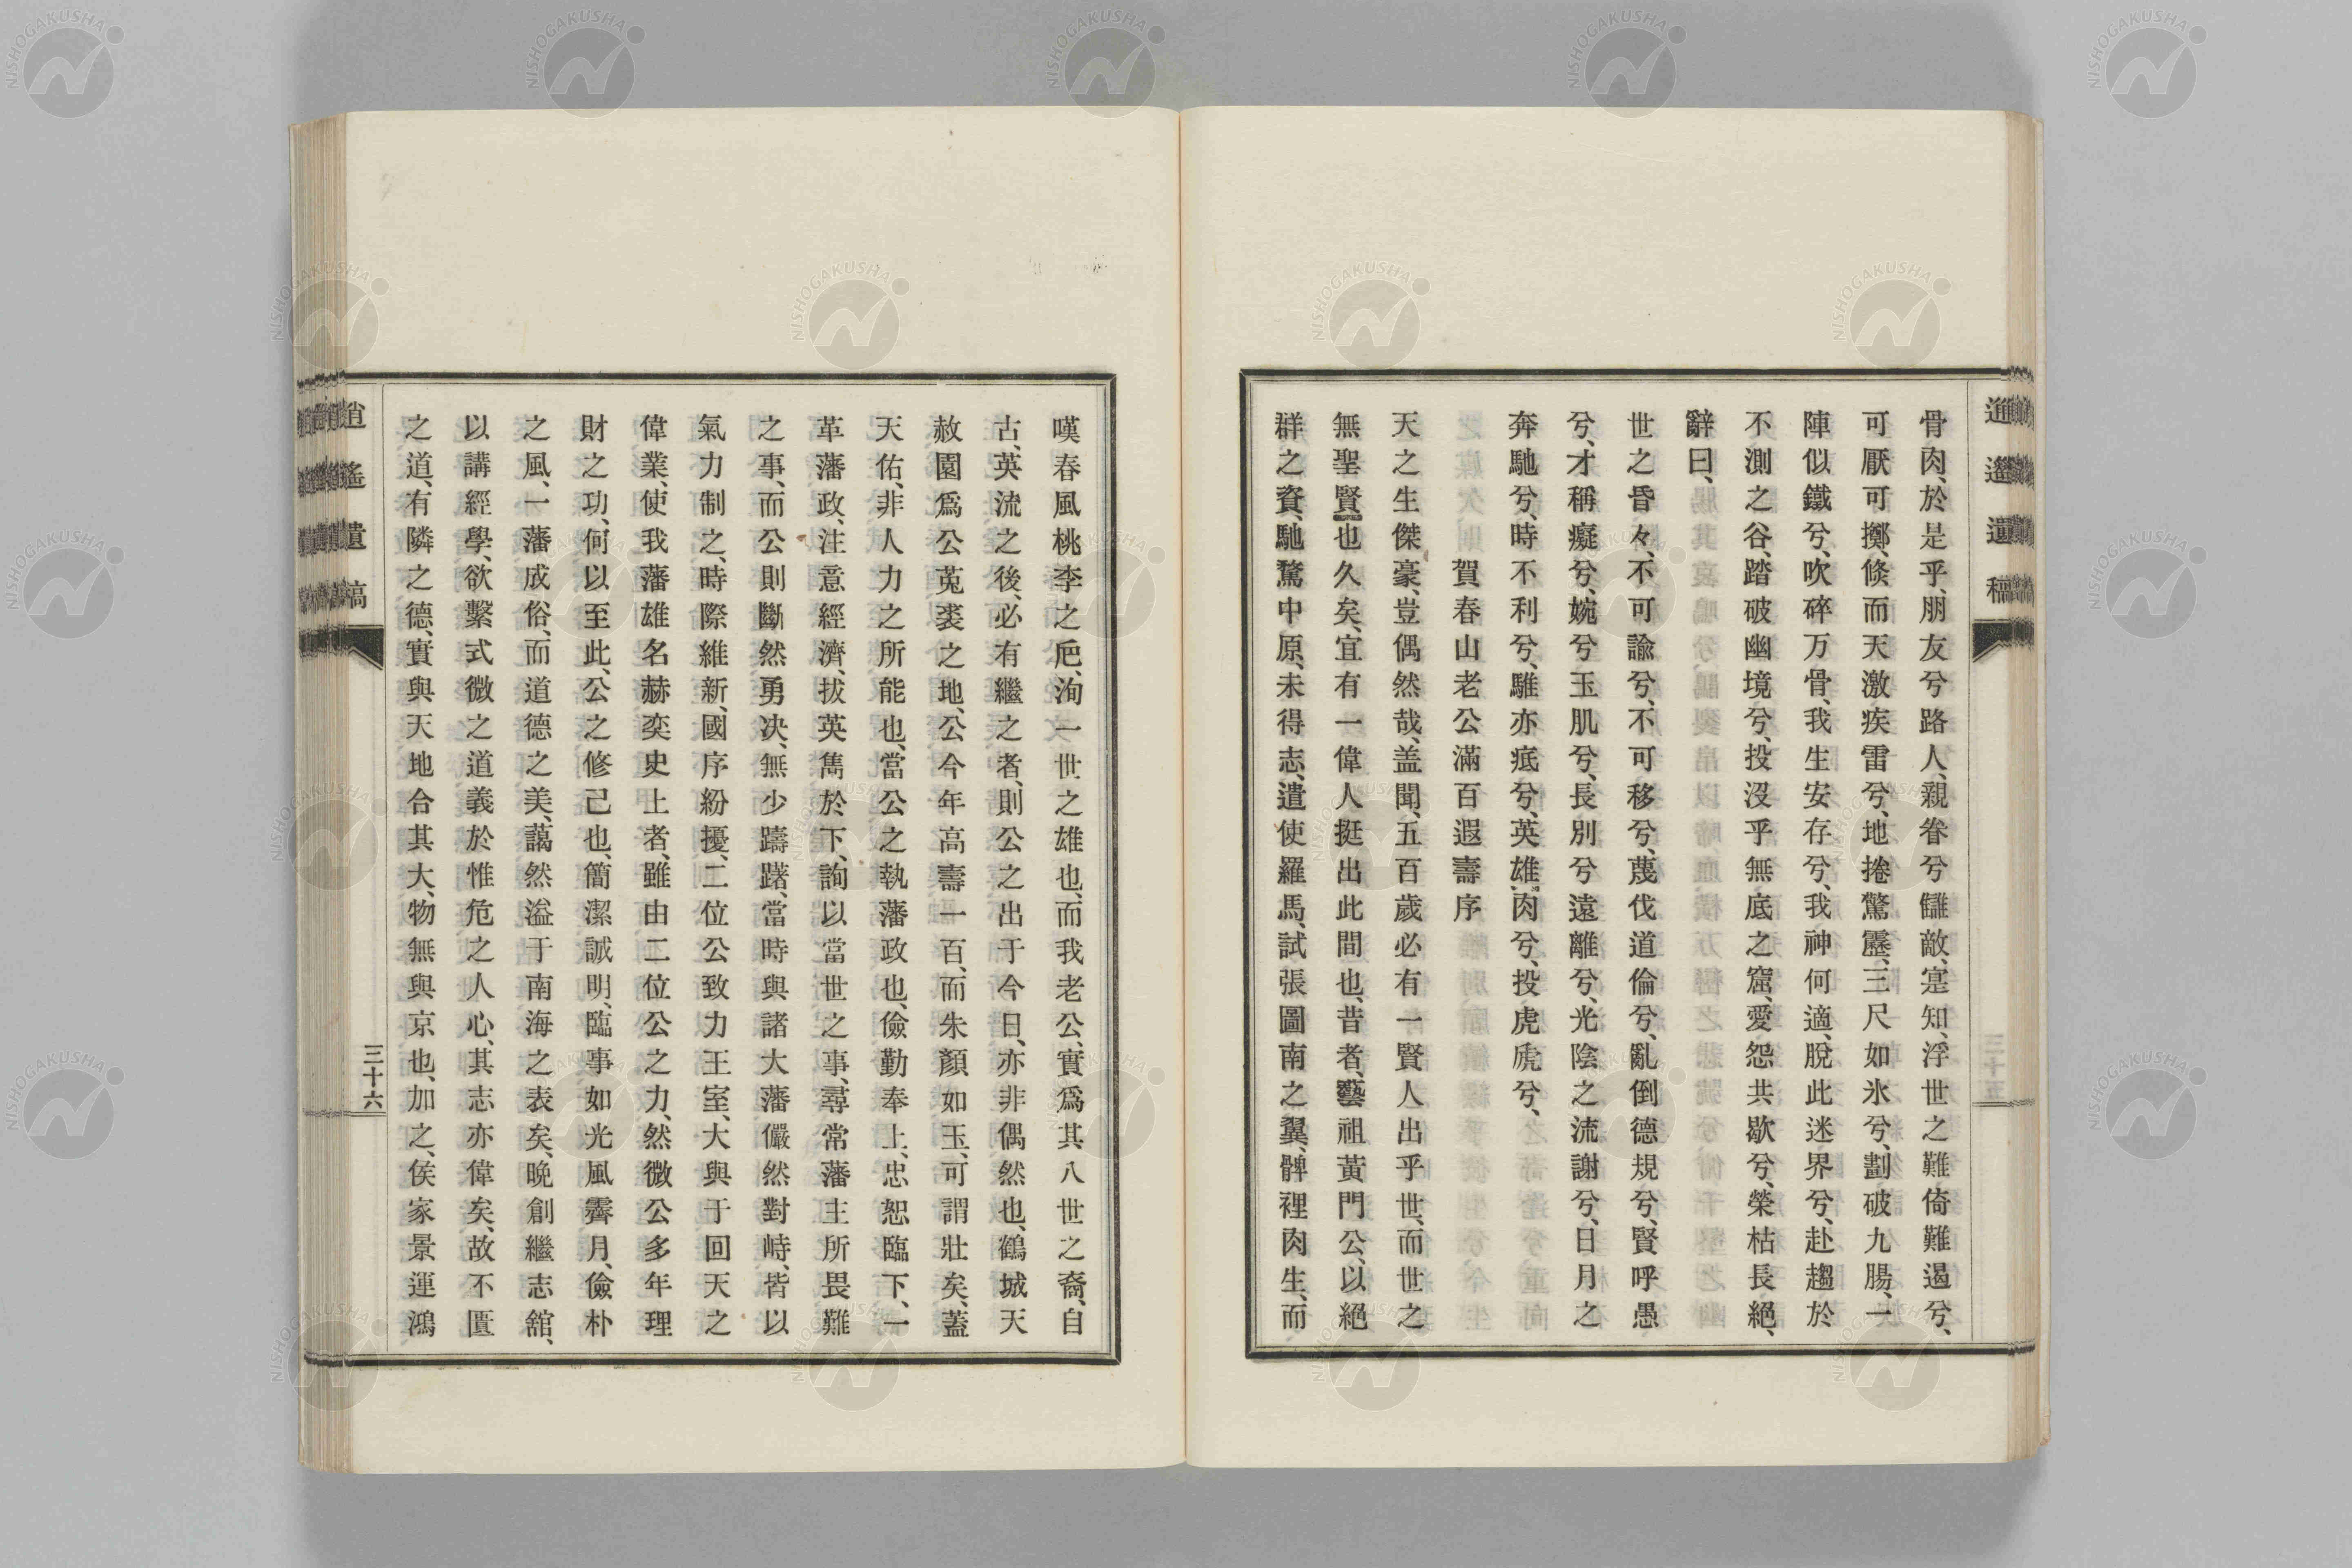 逍遙遺稿
骨肉、於是乎、朋友兮路人、親眷兮讎敵、寔知、浮世之難倚難遏兮、
可厭可擲、倏而天激、疾雷兮、地捲驚霆、三尺如氷兮、劃破九腸、一
陣似鐵兮、吹碎万骨、我生安存兮、我神何適、脫此迷界兮、赴趨於
不測之谷、踏破幽境兮、投沒乎無底之窟、愛怨共歇兮、榮枯長絕、
辭曰、
世之昏々、不可諭兮、不可移兮、蔑伐道倫兮、亂倒德規兮、賢呼愚
兮、才稱癡兮、婉兮玉肌兮、長別兮遠離兮、光陰之流謝兮、日月之
奔馳兮、時不利兮、騅亦疧兮、英雄肉兮、投虎虎兮、
賀春山老公滿百遐壽序
天之生傑豪、豈偶然哉、盖聞、五百歲必有一賢人出乎世、而世之
無聖賢也久矣、宜有一偉人挺出此間也、昔者、藝祖黃門公、以絕
群之資、馳騖中原、未得志、遣使羅馬、試張圖南之翼、髀裡肉生、而
三十五
嘆春風桃李之厄、洵一世之雄也、而我老公、實爲其八世之裔、自
古、英流之後、必有繼之者、則公之出于今日、亦非偶然也、鶴城天
赦園爲公菟裘之地、公今年高壽一百、而朱顏如玉、可謂壯矣、蓋
天佑、非人力之所能也、當公之執藩政也、儉勤奉上、忠恕臨下、一
革藩政、注意經濟、拔英雋於下、詢以當世之事、尋常藩主所畏難
之事、而公則斷然、勇决、無少躊躇、當時與諸大藩儼然對峙、皆以
氣力制之、時際維新、國序紛擾、二位公致力王室、大與于回天之
偉業、使我藩雄名赫奕史上者、雖由二位公之力、然微公多年理
財之功、何以至此、公之修己也、簡潔誠明、臨事如光風霽月、儉朴
之風、一藩成俗、而道德之美、藹然溢于南海之表矣、晩創繼志舘、
以講經學、欲繫式微之道義於惟危之人心、其志亦偉矣、故不匱
之道、有隣之德、實與天地合其大、物無與京也、加之、侯家景運鴻
逍遙遺稿
三十六